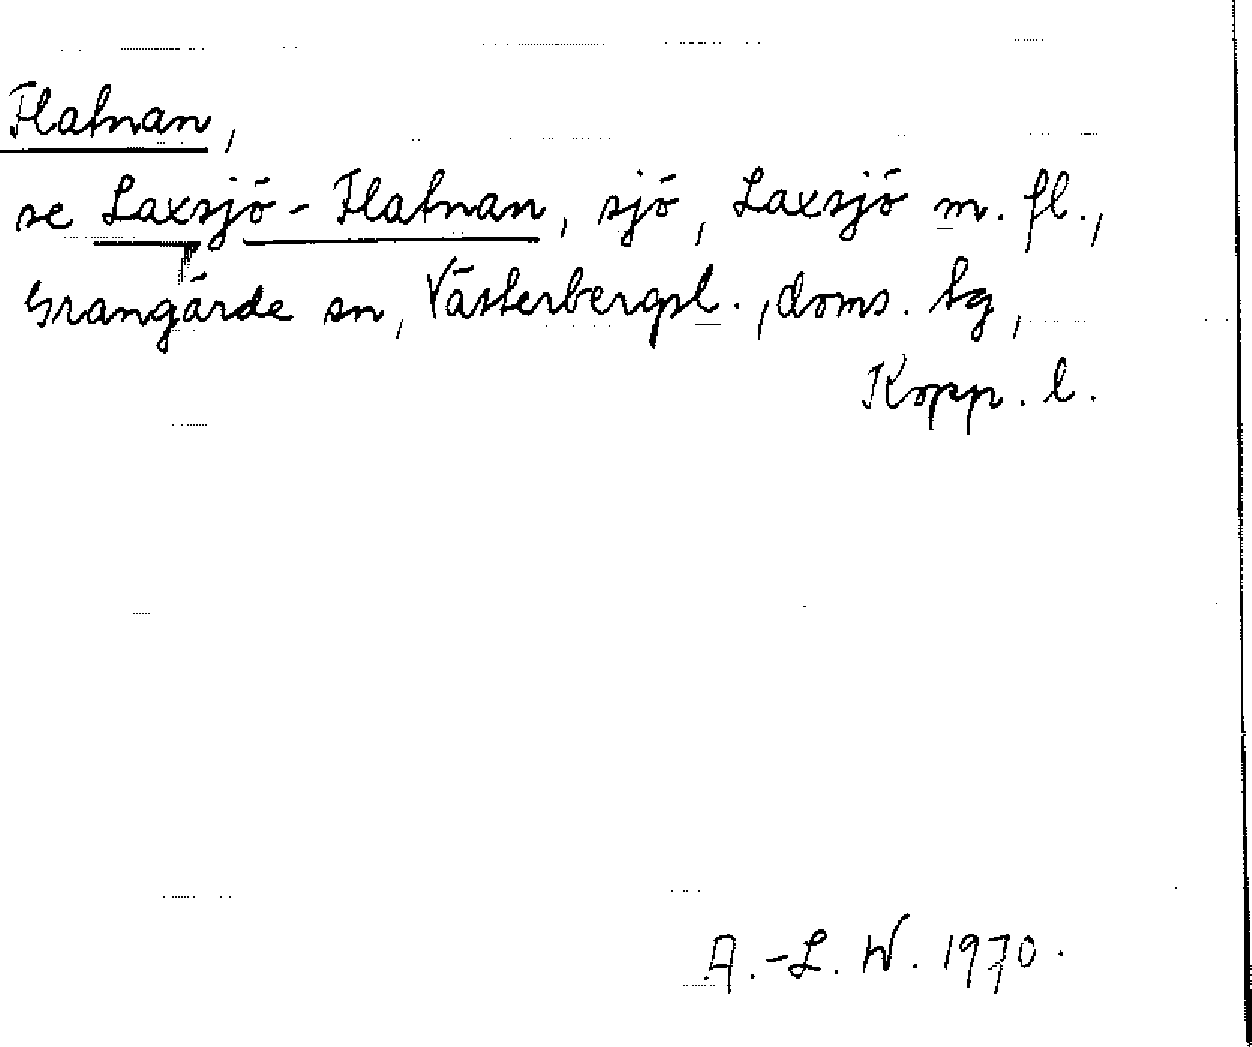 Flatnan,
se Laxsjö-Flatnan, sjö, Laxsjö m. fl.,
Grangärde sn, Västerbergsl., doms. tg,
Kopp. l.
A.-L. W. 1970.